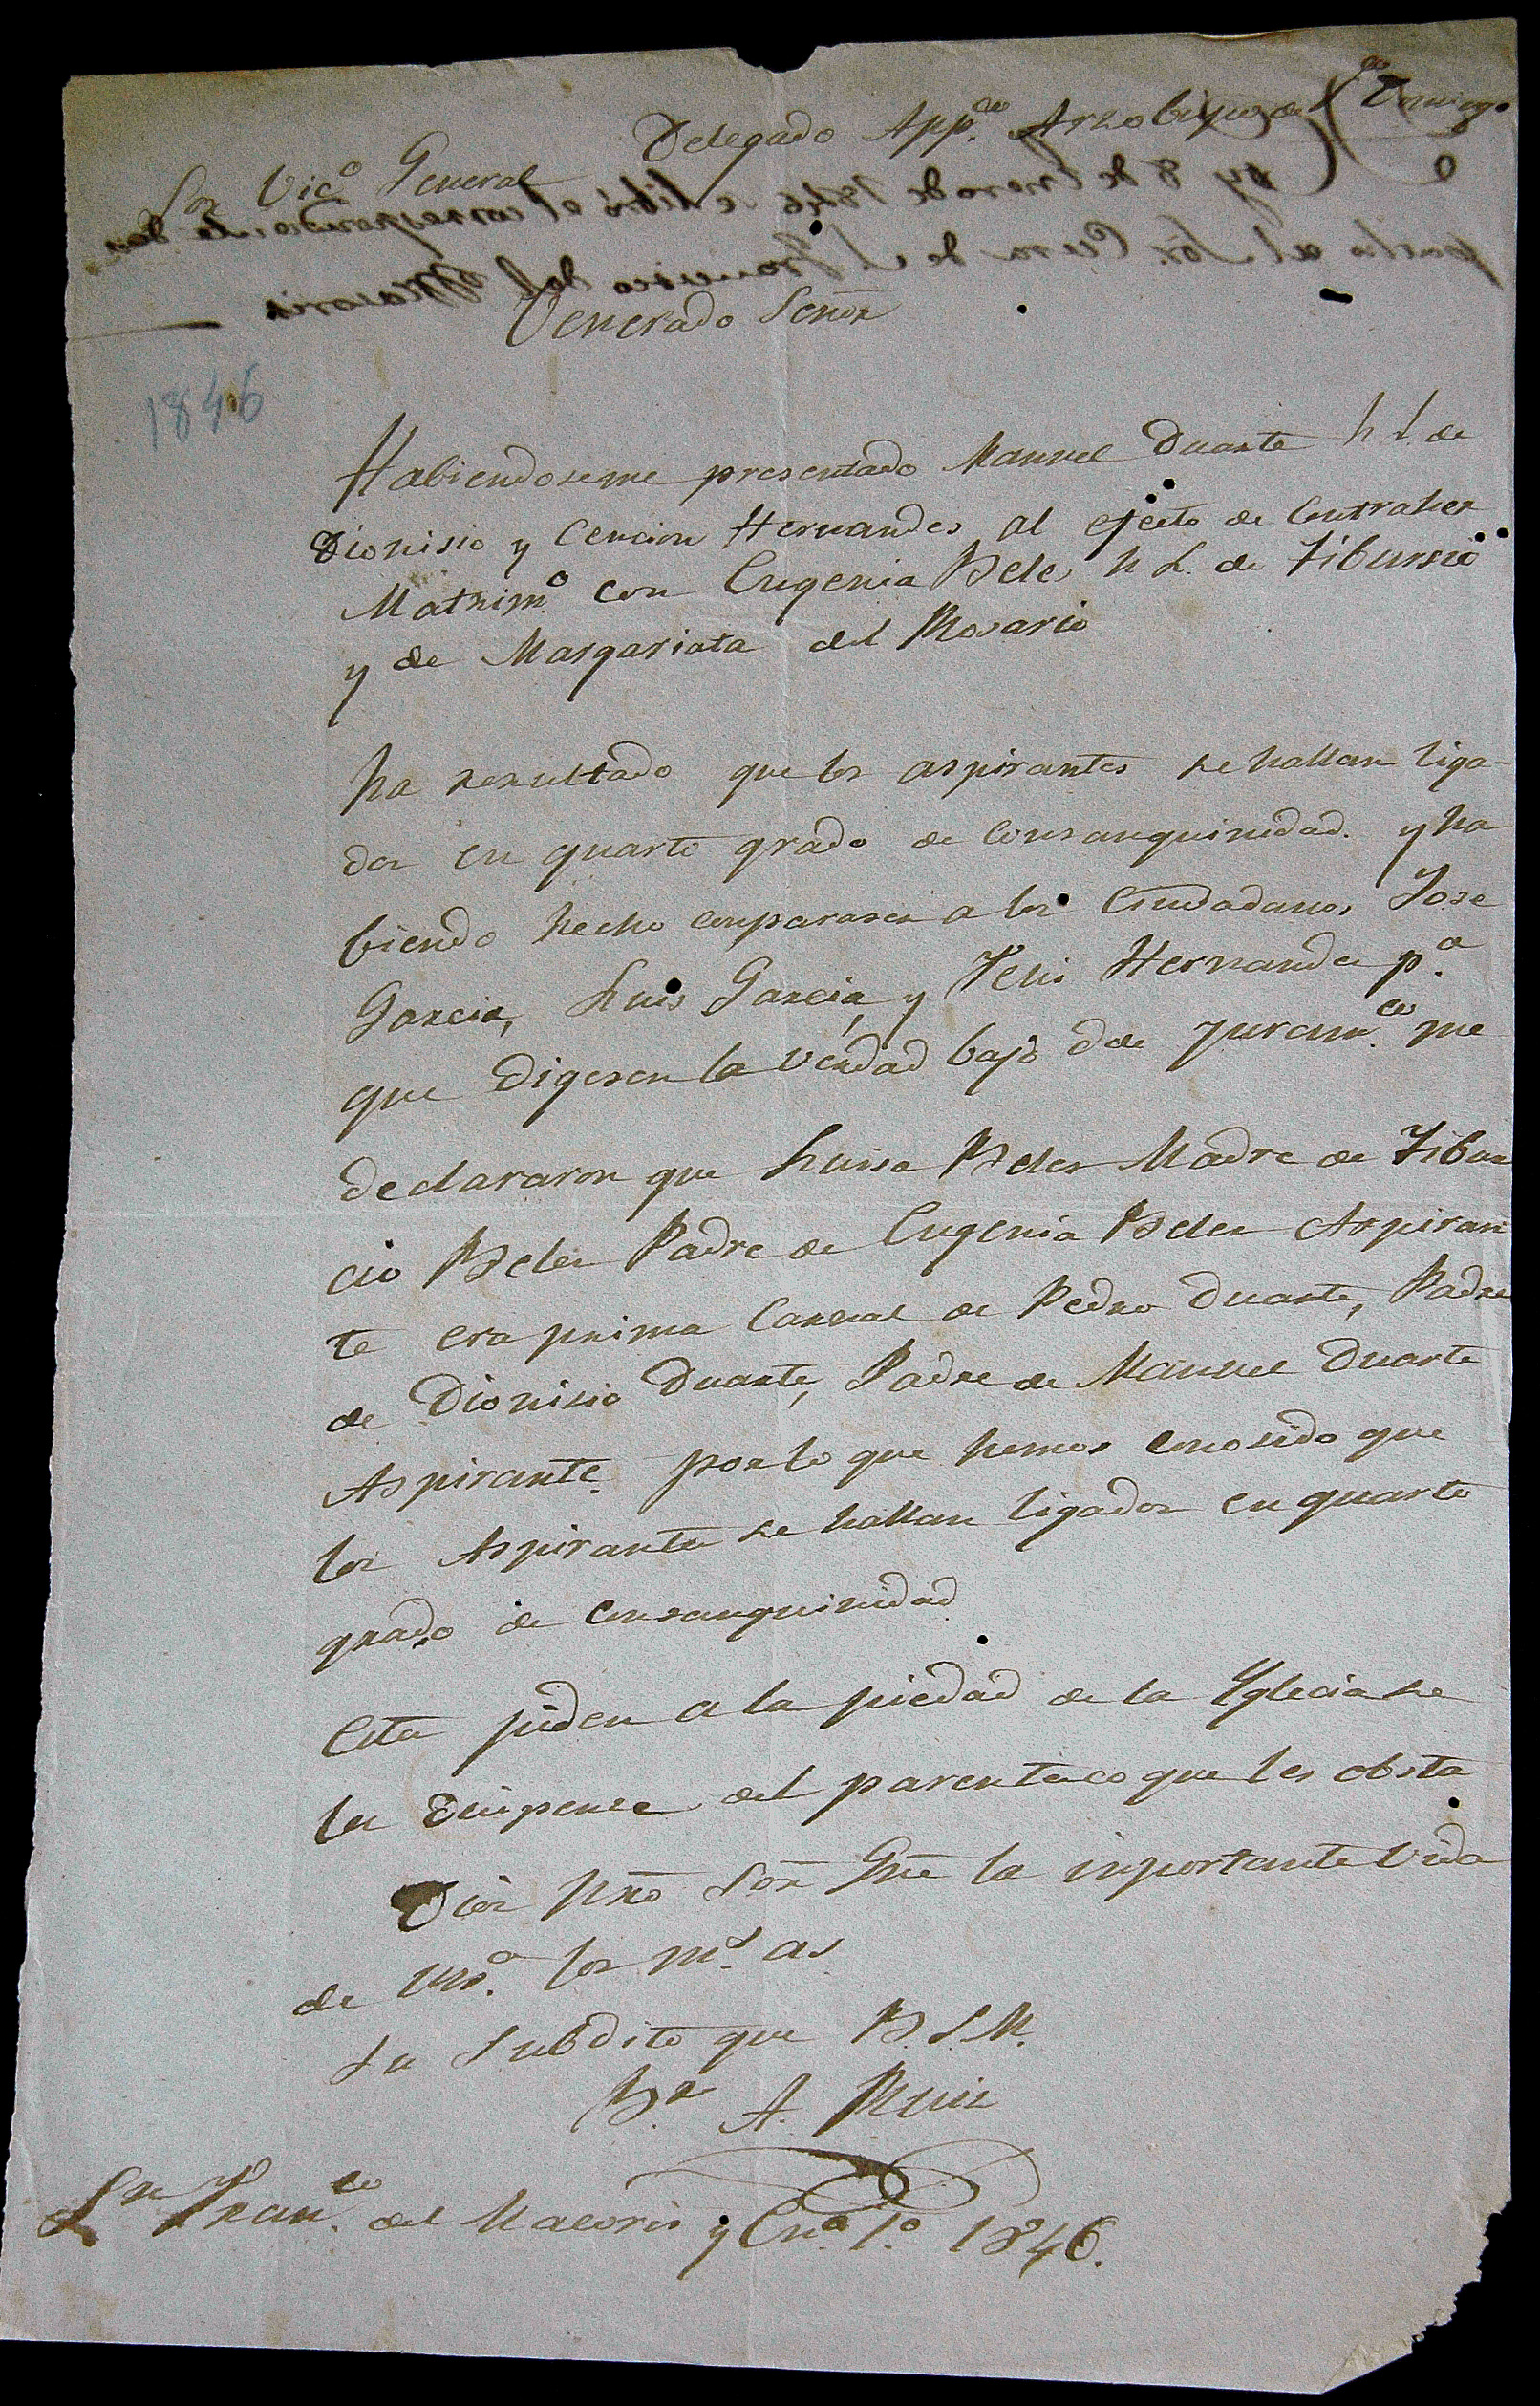 Sor Vic.o General Delegado App.co Arzobispo de S.to Domingo
Venerado Señor
1846
Habiendoseme presentado Manuel Duarte h l. de
Dionisio y Cencion Hernandes al efecto de Contraher
Matrim.o con Eugenia Beles h L. de Tibursio
y de Margariata del Rosario
ha resultado que los aspirantes se hallan liga-
dos en quarto grado de Consanguinidad. y ha
biendo hecho comparaser a los Ciudadanos Jose
Garcia, Luis Garcia, y Felis Hernandes p.a
que Digesen la verdad bajo de juram.to me
declararon que Luisa Beles Madre de Tibur
cio Beles Padre de Eugenia Beles Aspiran
te era prima Carnal de Pedro Duarte, Padre
de Dionisio Duarte, Padre de Manuel Duarte
Aspirante. por lo que hemos conosido que
los Aspirantes se hallan ligados en quarto
grado de Consanguinidad
Estos piden a la piedad de la Yglecia se
les Dispense del parentesco que les obsta
Dios Nro Sor Gue la importante vida
de V.S.a los m.s as
Su Subdito que B.S.M.
Br A. Ruiz
Sn Fran.co del Macoris y En.o 1.o 1846.
Hoy 8 de Enero de 1846 se libró el correspondiente des
pacho al Sor. Cura de S. Francisco del Macoris